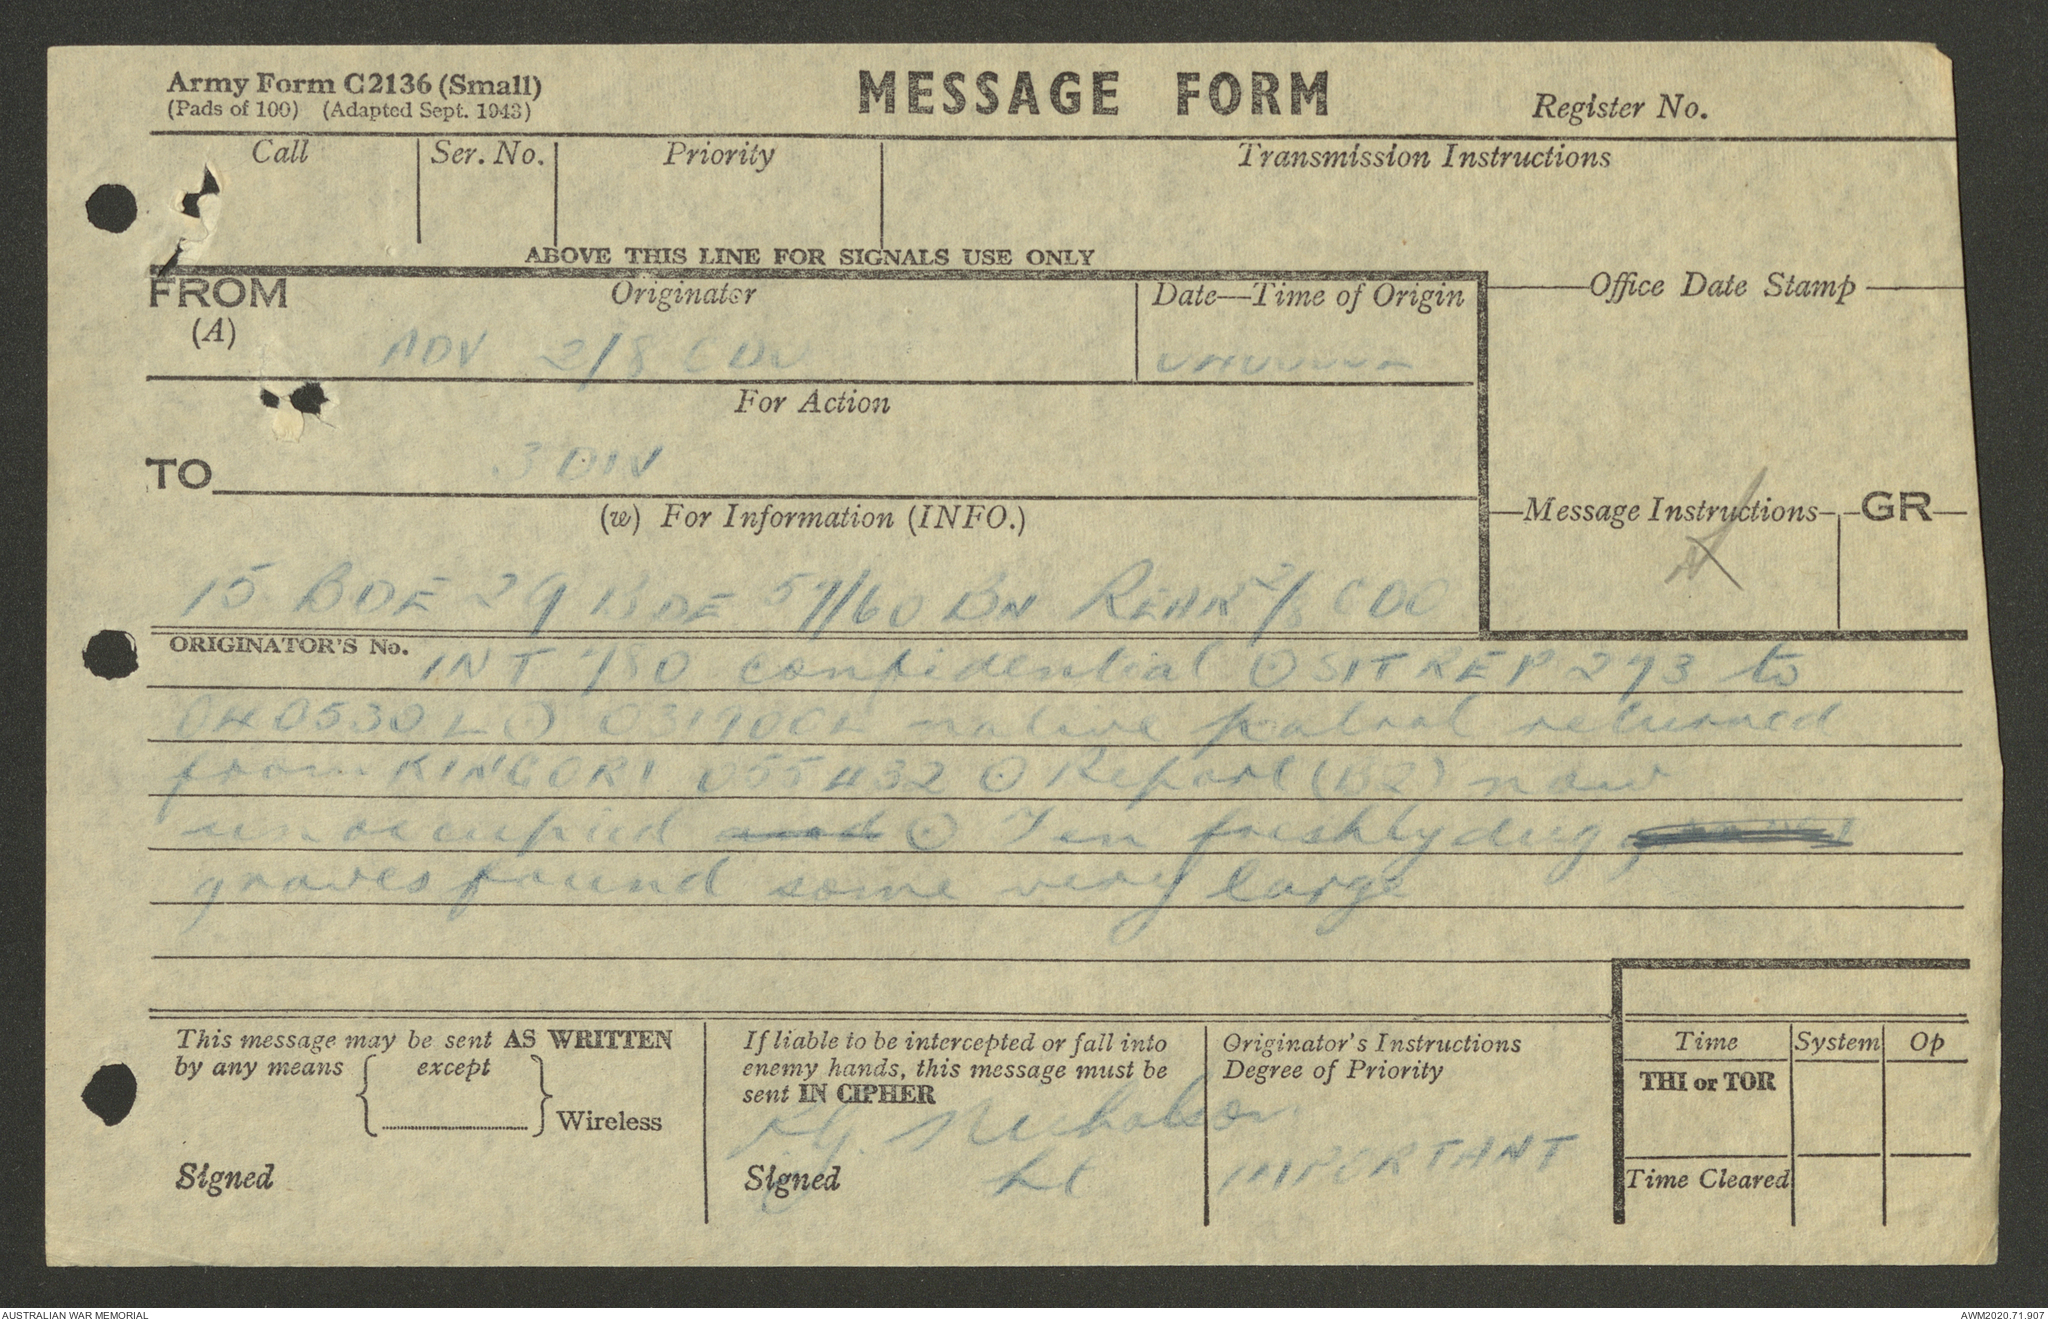 Army Form C2136 (Small)
(Pads of 100) (Adapted Sept. 1943)
MESSAGE FORM
Register No.
Call
Ser. No.
Priority
Transmission Instructions
ABOVE THIS LINE FOR SIGNALS USE ONLY
FROM
(A)
Originator
Date—Time of Origin
Office Date Stamp
ADV 2/8 CDO
For Action
TO
3 DIV
(w) For Information (INFO.)
Message Instructions
GR
15 BDE 29 BDE 57/60 BN REAR 2/8 CDO
ORIGINATOR'S No.
INT 780 confidential ⊙ SITREP 273 to
040530L ⊙ 031700L native patrol returned
from KINGORI 055432 ⊙ Report (B2) now
unoccupied and ⊙ Ten freshly dug graves
graves found some very large
This message may be sent AS WRITTEN
by any means { except } Wireless
Signed
If liable to be intercepted or fall into
enemy hands, this message must be
sent IN CIPHER
Nicholson
Signed
Lt
Originator's Instructions
Degree of Priority
IMPORTANT
Time
System
Op
THI or TOR
Time Cleared
AUSTRALIAN WAR MEMORIAL
AWM2020.71.907